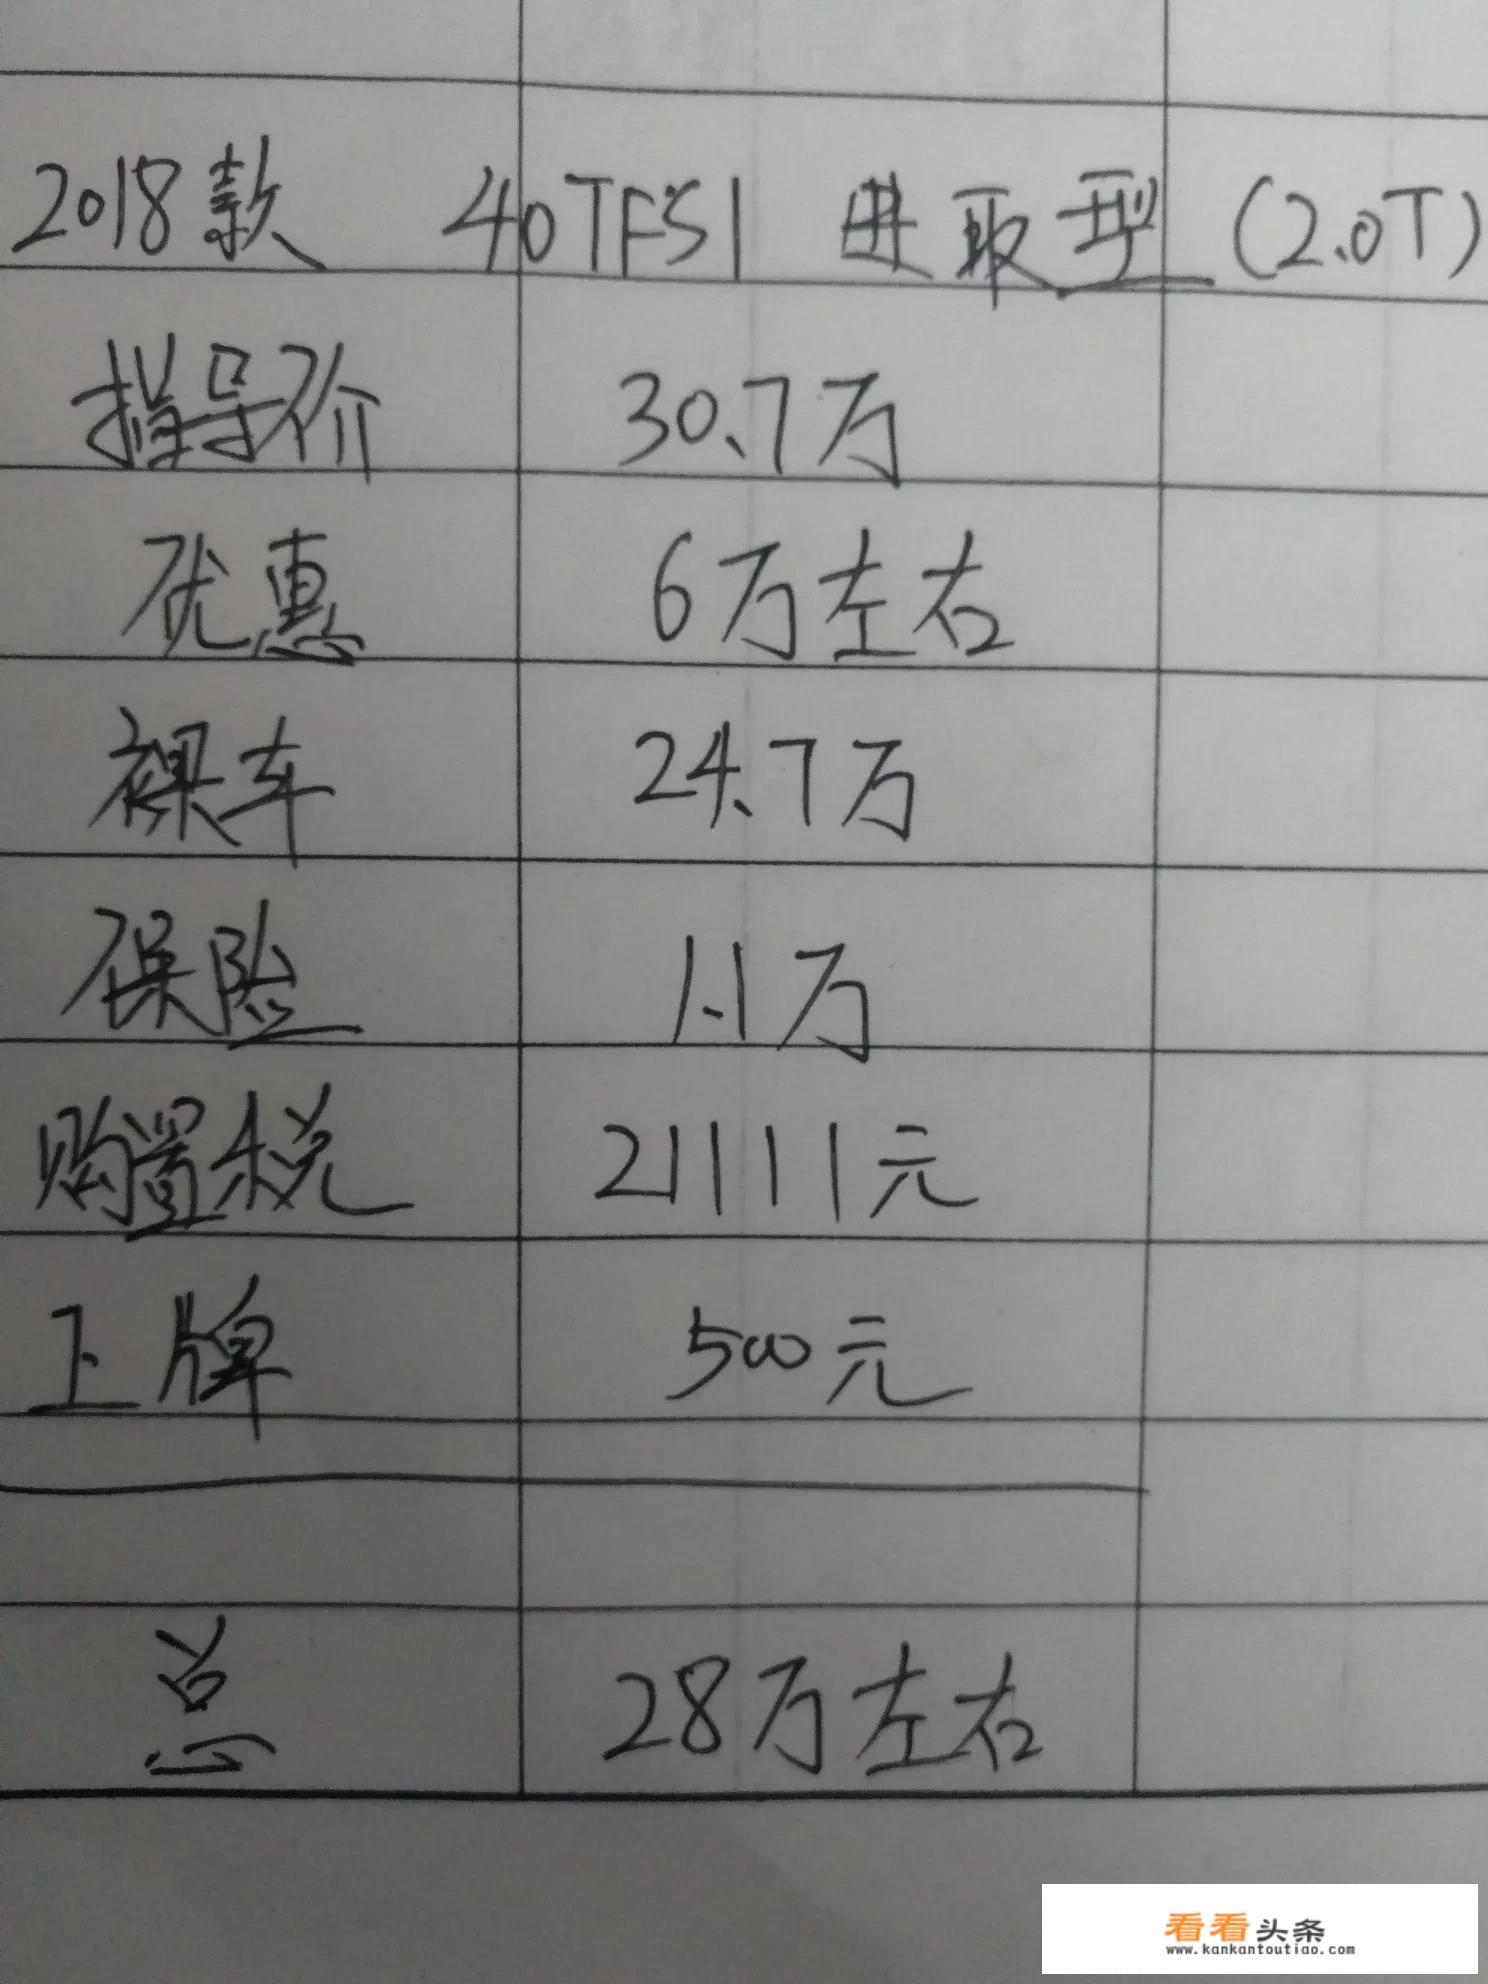 2018款 40TFSI 进取型 (2.0T)
指导价 30.7万
优惠 6万左右
裸车 24.7万
保险 1.1万
购置税 21111元
上牌 500元
总 28万左右
看看头条
www.kankantoutiao.com